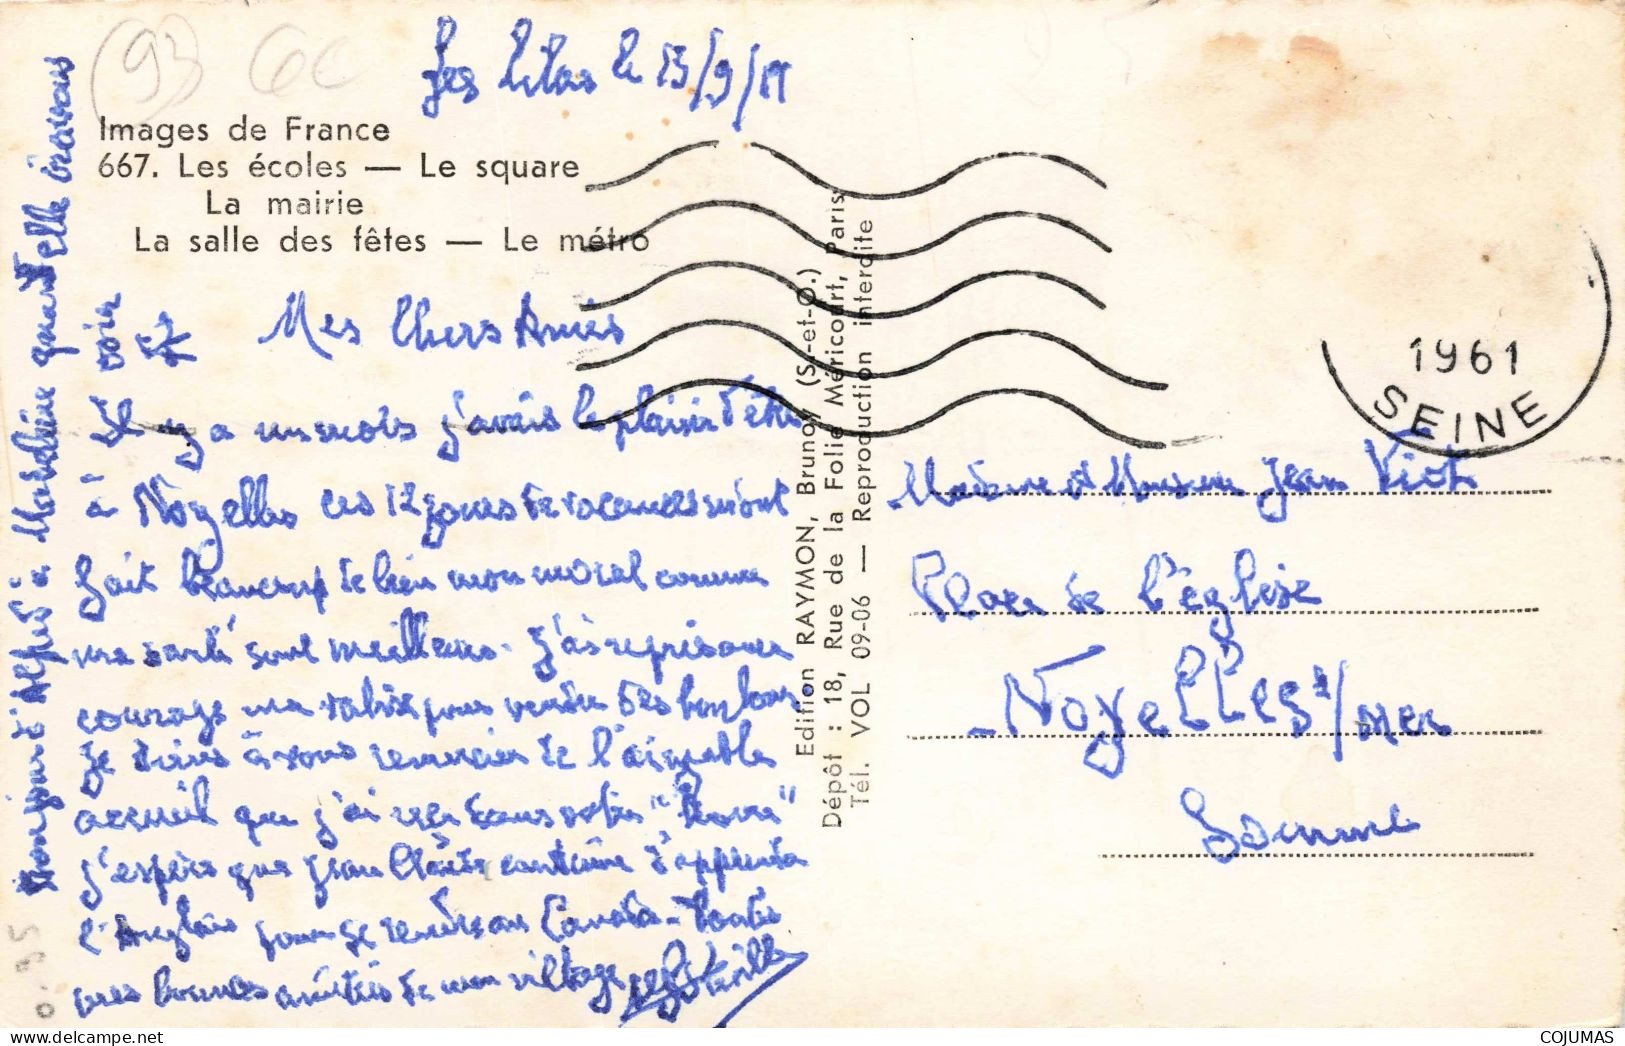 (93) 6€
Les Lilas le 13/9/
Images de France
667. Les écoles — Le square
La mairie
La salle des fêtes — Le métro
Mes Chers Amis
Il y a un mois j'avais le plaisir d'être
à Noyelles ces 12 jours de vacances m'ont
fait beaucoup de bien mon moral comme
ma santé sont meilleurs. J'ai repris avec
courage ma valise pour vendre des bonbons
Je tiens à vous remercier de l'aimable
accueil que j'ai reçu dans votre
j'espère que Jean Claude continue d'apprendre
l'Anglais pour se rendre au Canada. Toutes
mes bonnes amitiés de mon village
Bonjour d'Alfred à quand elle ira vous
voir
Edition RAYMON, Brunoy (S.-et-O.)
Dépôt : 18, Rue de la Folie Méricourt, Paris
Tél. VOL 09-06 — Reproduction interdite
1961
SEINE
Madame et Monsieur Jean Viot
Place de l'église
Noyelles s/mer
Somme
0.95
COJUMAS
delcampe.net